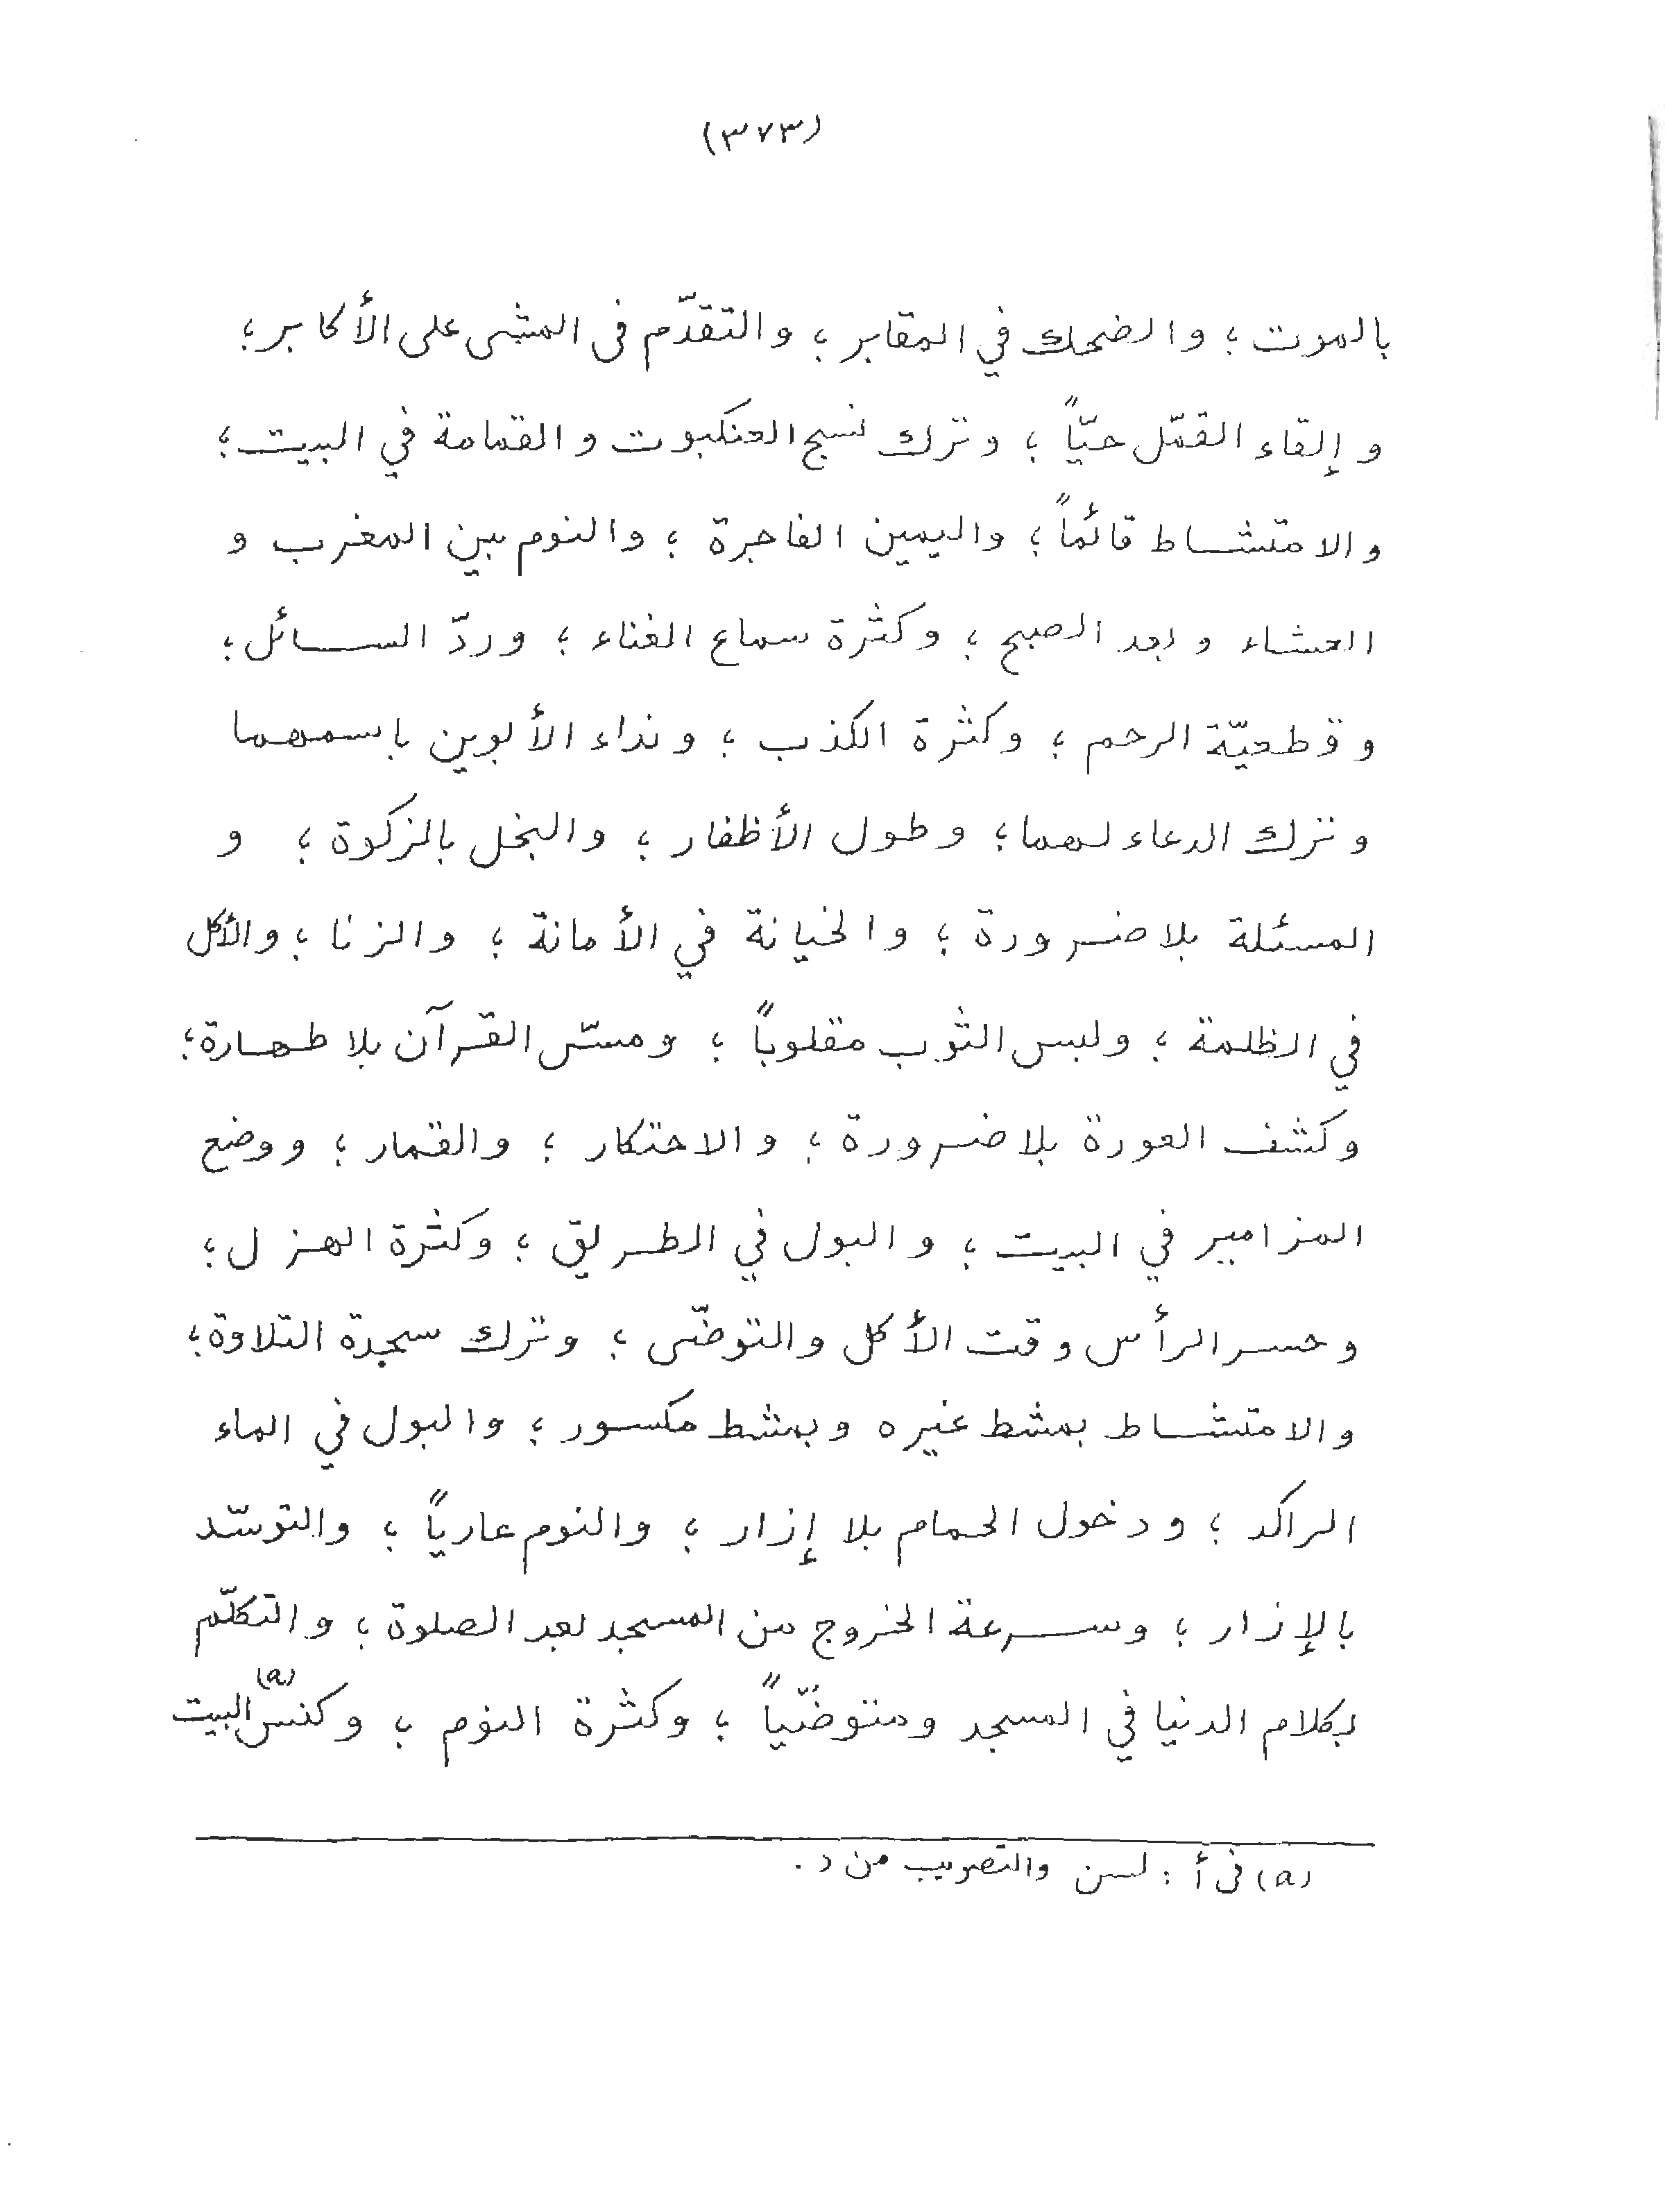 (٣٧٣)
بالموت ؛ والضحك في المقابر ؛ والتقدّم فى المشى على الأكابر ؛
و إلقاء القمّل حيّاً ؛ وترك نسج العنكبوت و القمامة في البيت ؛
والامتشاط قائماً ؛ واليمين الفاجرة ؛ والنوم بين المغرب و
العشاء وبعد الصبح ؛ وكثرة سماع الغناء ؛ وردّ السائل ؛
وقطعيّة الرحم ؛ وكثرة الكذب ؛ ونداء الأبوين باسمهما
وترك الدعاء لهما ؛ وطول الأظفار ؛ والبخل بالزكوة ؛ و
المسئلة بلا ضرورة ؛ والخيانة في الأمانة ؛ والزنا ؛ والأكل
في الظلمة ؛ ولبس الثوب مقلوباً ؛ ومسّ القرآن بلا طهارة ؛
وكشف العورة بلا ضرورة ؛ والاحتكار ؛ والقمار ؛ ووضع
المزامير في البيت ؛ والبول في الطريق ؛ وكثرة الهزل ؛
وحسر الرأس وقت الأكل والتوضّى ؛ وترك سجدة التلاوة ؛
والامتشاط بمشط غيره وبمشط مكسور ؛ والبول في الماء
الراكد ؛ ودخول الحمام بلا إزار ؛ والنوم عارياً ؛ والتوسّد
بالإزار ؛ وسرعة الخروج من المسجد بعد الصلوة ؛ والتكلّم
بكلام الدنيا في المسجد ومتوضّياً ؛ وكثرة النوم ؛ وكنس (a) البيت
(a) فى أ : لسن والتصويب من د .